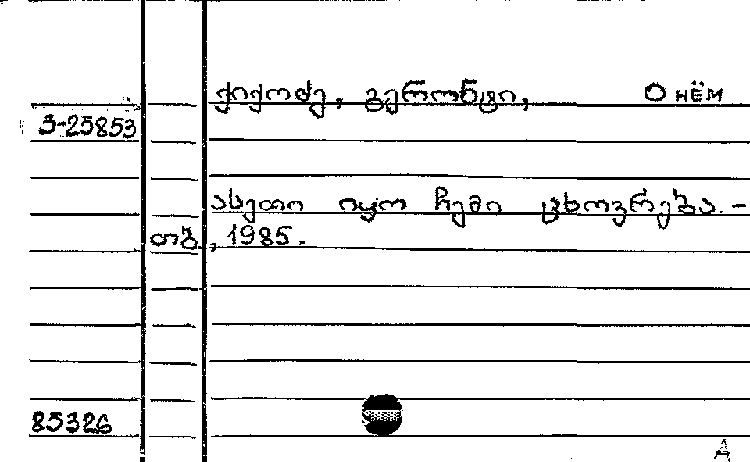 ქიქოძე, გერონტი, О НЁМ
3-25853
ასეთი იყო ჩემი ცხოვრება. –
თბ., 1985.
85326
Д